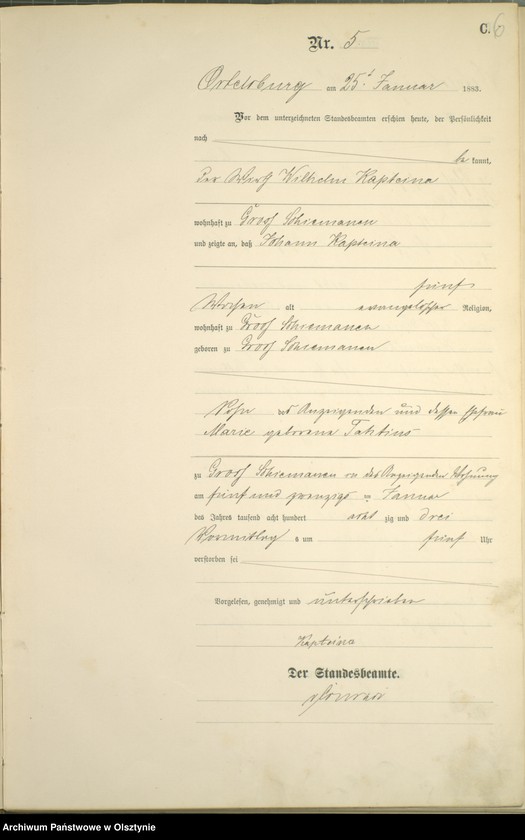 C. 6
Nr. 5
Ortelsburg am 25t Januar 1883.
Vor dem unterzeichneten Standesbeamten erschien heute, der Persönlichkeit
nach
be kannt,
der Wirth Wilhelm Kapteina
wohnhaft zu Groß Schiemanen
und zeigte an, daß Johann Kapteina
fünf
Wochen alt evangelischer Religion,
wohnhaft zu Groß Schiemanen
geboren zu Groß Schiemanen
Sohn des Anzeigenden und dessen Ehefrau
Marie geborene
zu Groß Schiemanen in des Anzeigenden Wohnung
am fünf und zwanzigs ten Januar
des Jahres tausend acht hundert acht zig und drei
Vormittag s um fünf Uhr
verstorben sei
Vorgelesen, genehmigt und unterschrieben
Kapteina
Der Standesbeamte.
Archiwum Państwowe w Olsztynie